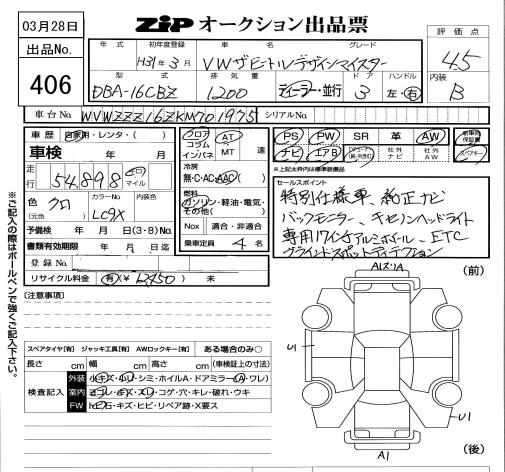 03月28日
ZiP オークション出品票
出品No.
406
年 式 初年度登録 車 名 グレード
H31年3月 VW ザビートルデザインマイスター
評 価 点
4.5
型 式 排 気 量 ドア ハンドル
DBA-16CBZ 1200 ディーラー・並行 3 左・右
内装
B
車台No. WVWZZZ16ZKM701975 シリアルNo.
車 歴 自家用・レンタ・( )
車検 年 月
走行 54,898 km マイル
色 クロ カラーNo. LC9X 内装色
(元色)
予備検 年 月 日(3・8)No.
書類有効期限 年 月 日迄
登録No.
リサイクル料金 有(¥ 12,450) 未
フロア AT
コラム
インパネ MT 速
冷房
無・C・AC・AAC( )
燃料
ガソリン・軽油・電気・
その他( )
Nox 適合・非適合
乗車定員 4 名
PS PW SR 革 AW 新車時保証書
ナビ エアB 社外ナビ 社外AW スペアキー
※上記太枠内は標準装備品
セールスポイント
特別仕様車、純正ナビ
バックモニター、キセノンヘッドライト
専用17インチアルミホイール、ETC
ブラインドスポットディテクション
※ご記入の際はボールペンで強くご記入下さい。
[注意事項]
スペアタイヤ[有] ジャッキ工具[有] AWロックキー[有] ある場合のみ○
長さ cm 幅 cm 高さ cm (車検証上の寸法)
検査記入
外装 小キズ・凹・シミ・ホイルA・ドアミラー(A・ワレ)
室内 ヨゴレ・キズ・スレ・コゲ・穴・キレ・破れ・ウキ
FW トビ石・キズ・ヒビ・リペア跡・X要ス
A1スリA
(前)
U1
U1
A1
(後)